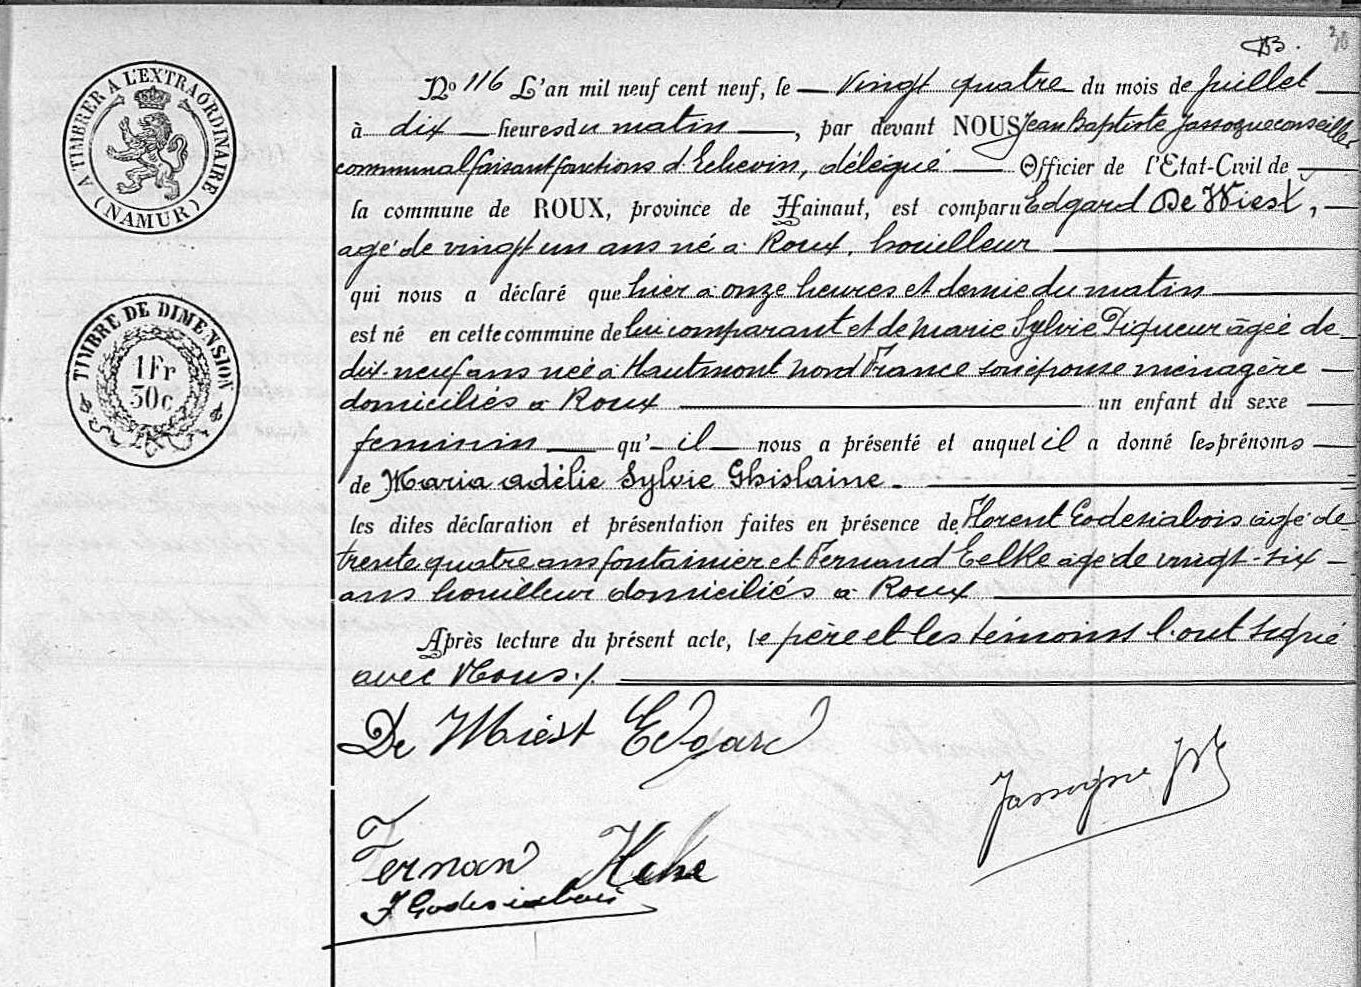 DB. 30
No 116 L'an mil neuf cent neuf, le vingt quatre du mois de Juillet
à dix heures du matin, par devant NOUS Jean Baptiste Jassogne conseiller
communal faisant fonctions d'Echevin, délégué Officier de l'Etat-Civil de
la commune de ROUX, province de Hainaut, est comparu Edgard De Wiest,
agé de vingt un ans né à Roux, houilleur
qui nous a déclaré que hier à onze heures et demie du matin
est né en cette commune de lui comparant et de Marie Sylvie Piqueur âgée de
dix-neuf ans née à Hautmont Nord France son épouse ménagère
domiciliés à Roux un enfant du sexe
feminin qu'il nous a présenté et auquel il a donné les prénoms
de Maria Adélie Sylvie Ghislaine.
les dites déclaration et présentation faites en présence de Florent Godesiabois âgé de
trente quatre ans fontainier et Fernand Eelke âgé de vingt-six
ans houilleur domiciliés à Roux
Après lecture du présent acte, le père et les témoins l'ont signé
avec Nous ./.
De Wiest Edgard
Jassogne JB
Fernand
F Godesiabois
A TIMBRER A L'EXTRAORDINAIRE
(NAMUR)
TIMBRE DE DIMENSION
1 Fr
30 c.